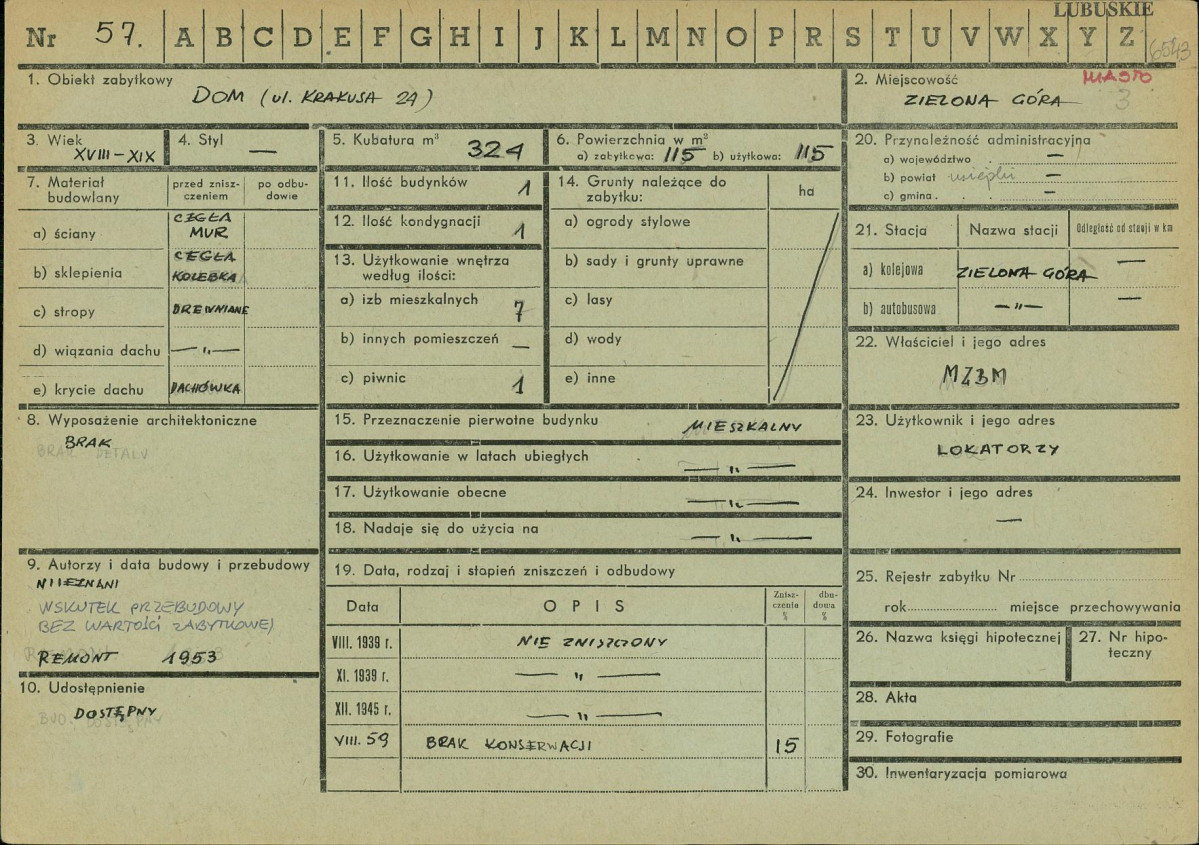 LUBUSKIE
Nr 57. A B C D E F G H I J K L M N O P R S T U V W X Y Z
6543
1. Obiekt zabytkowy
DOM (ul. KRAKUSA 24)
2. Miejscowość MIASTO
ZIELONA GÓRA 3
3. Wiek
XVIII-XIX
4. Styl
—
5. Kubatura m³ 324
6. Powierzchnia w m²
a) zabytkowa: 115 b) użytkowa: 115
20. Przynależność administracyjna
a) województwo . —
b) powiat —
c) gmina . —
7. Materiał budowlany
przed zniszczeniem
po odbudowie
a) ściany CEGŁA MUR
b) sklepienia CEGŁA KOLEBKA
c) stropy DREWNIANE
d) wiązania dachu —„—
e) krycie dachu DACHÓWKA
11. Ilość budynków 1
12. Ilość kondygnacji 1
13. Użytkowanie wnętrza
według ilości:
a) izb mieszkalnych 7
b) innych pomieszczeń —
c) piwnic 1
14. Grunty należące do
zabytku:
ha
a) ogrody stylowe
b) sady i grunty uprawne
c) lasy
d) wody
e) inne
21. Stacja Nazwa stacji Odległość od stacji w km
a) kolejowa ZIELONA GÓRA —
b) autobusowa —„— —
22. Właściciel i jego adres
MZBM
8. Wyposażenie architektoniczne
BRAK
BRAK DETALU
15. Przeznaczenie pierwotne budynku MIESZKALNY
16. Użytkowanie w latach ubiegłych —„—
17. Użytkowanie obecne —„—
18. Nadaje się do użycia na —„—
23. Użytkownik i jego adres
LOKATORZY
24. Inwestor i jego adres
—
9. Autorzy i data budowy i przebudowy
NIEZNANI
WSKUTEK PRZEBUDOWY
BEZ WARTOŚCI ZABYTKOWEJ
REMONT 1953
10. Udostępnienie
DOSTĘPNY
19. Data, rodzaj i stopień zniszczeń i odbudowy
Data OPIS Zniszczenia % dbudowa %
VIII. 1939 r. NIE ZNISZCZONY
XI. 1939 r. —„—
XII. 1945 r. —„—
VIII. 59 BRAK KONSERWACJI 15
25. Rejestr zabytku Nr
rok miejsce przechowywania
26. Nazwa księgi hipotecznej
27. Nr hipoteczny
28. Akta
29. Fotografie
30. Inwentaryzacja pomiarowa